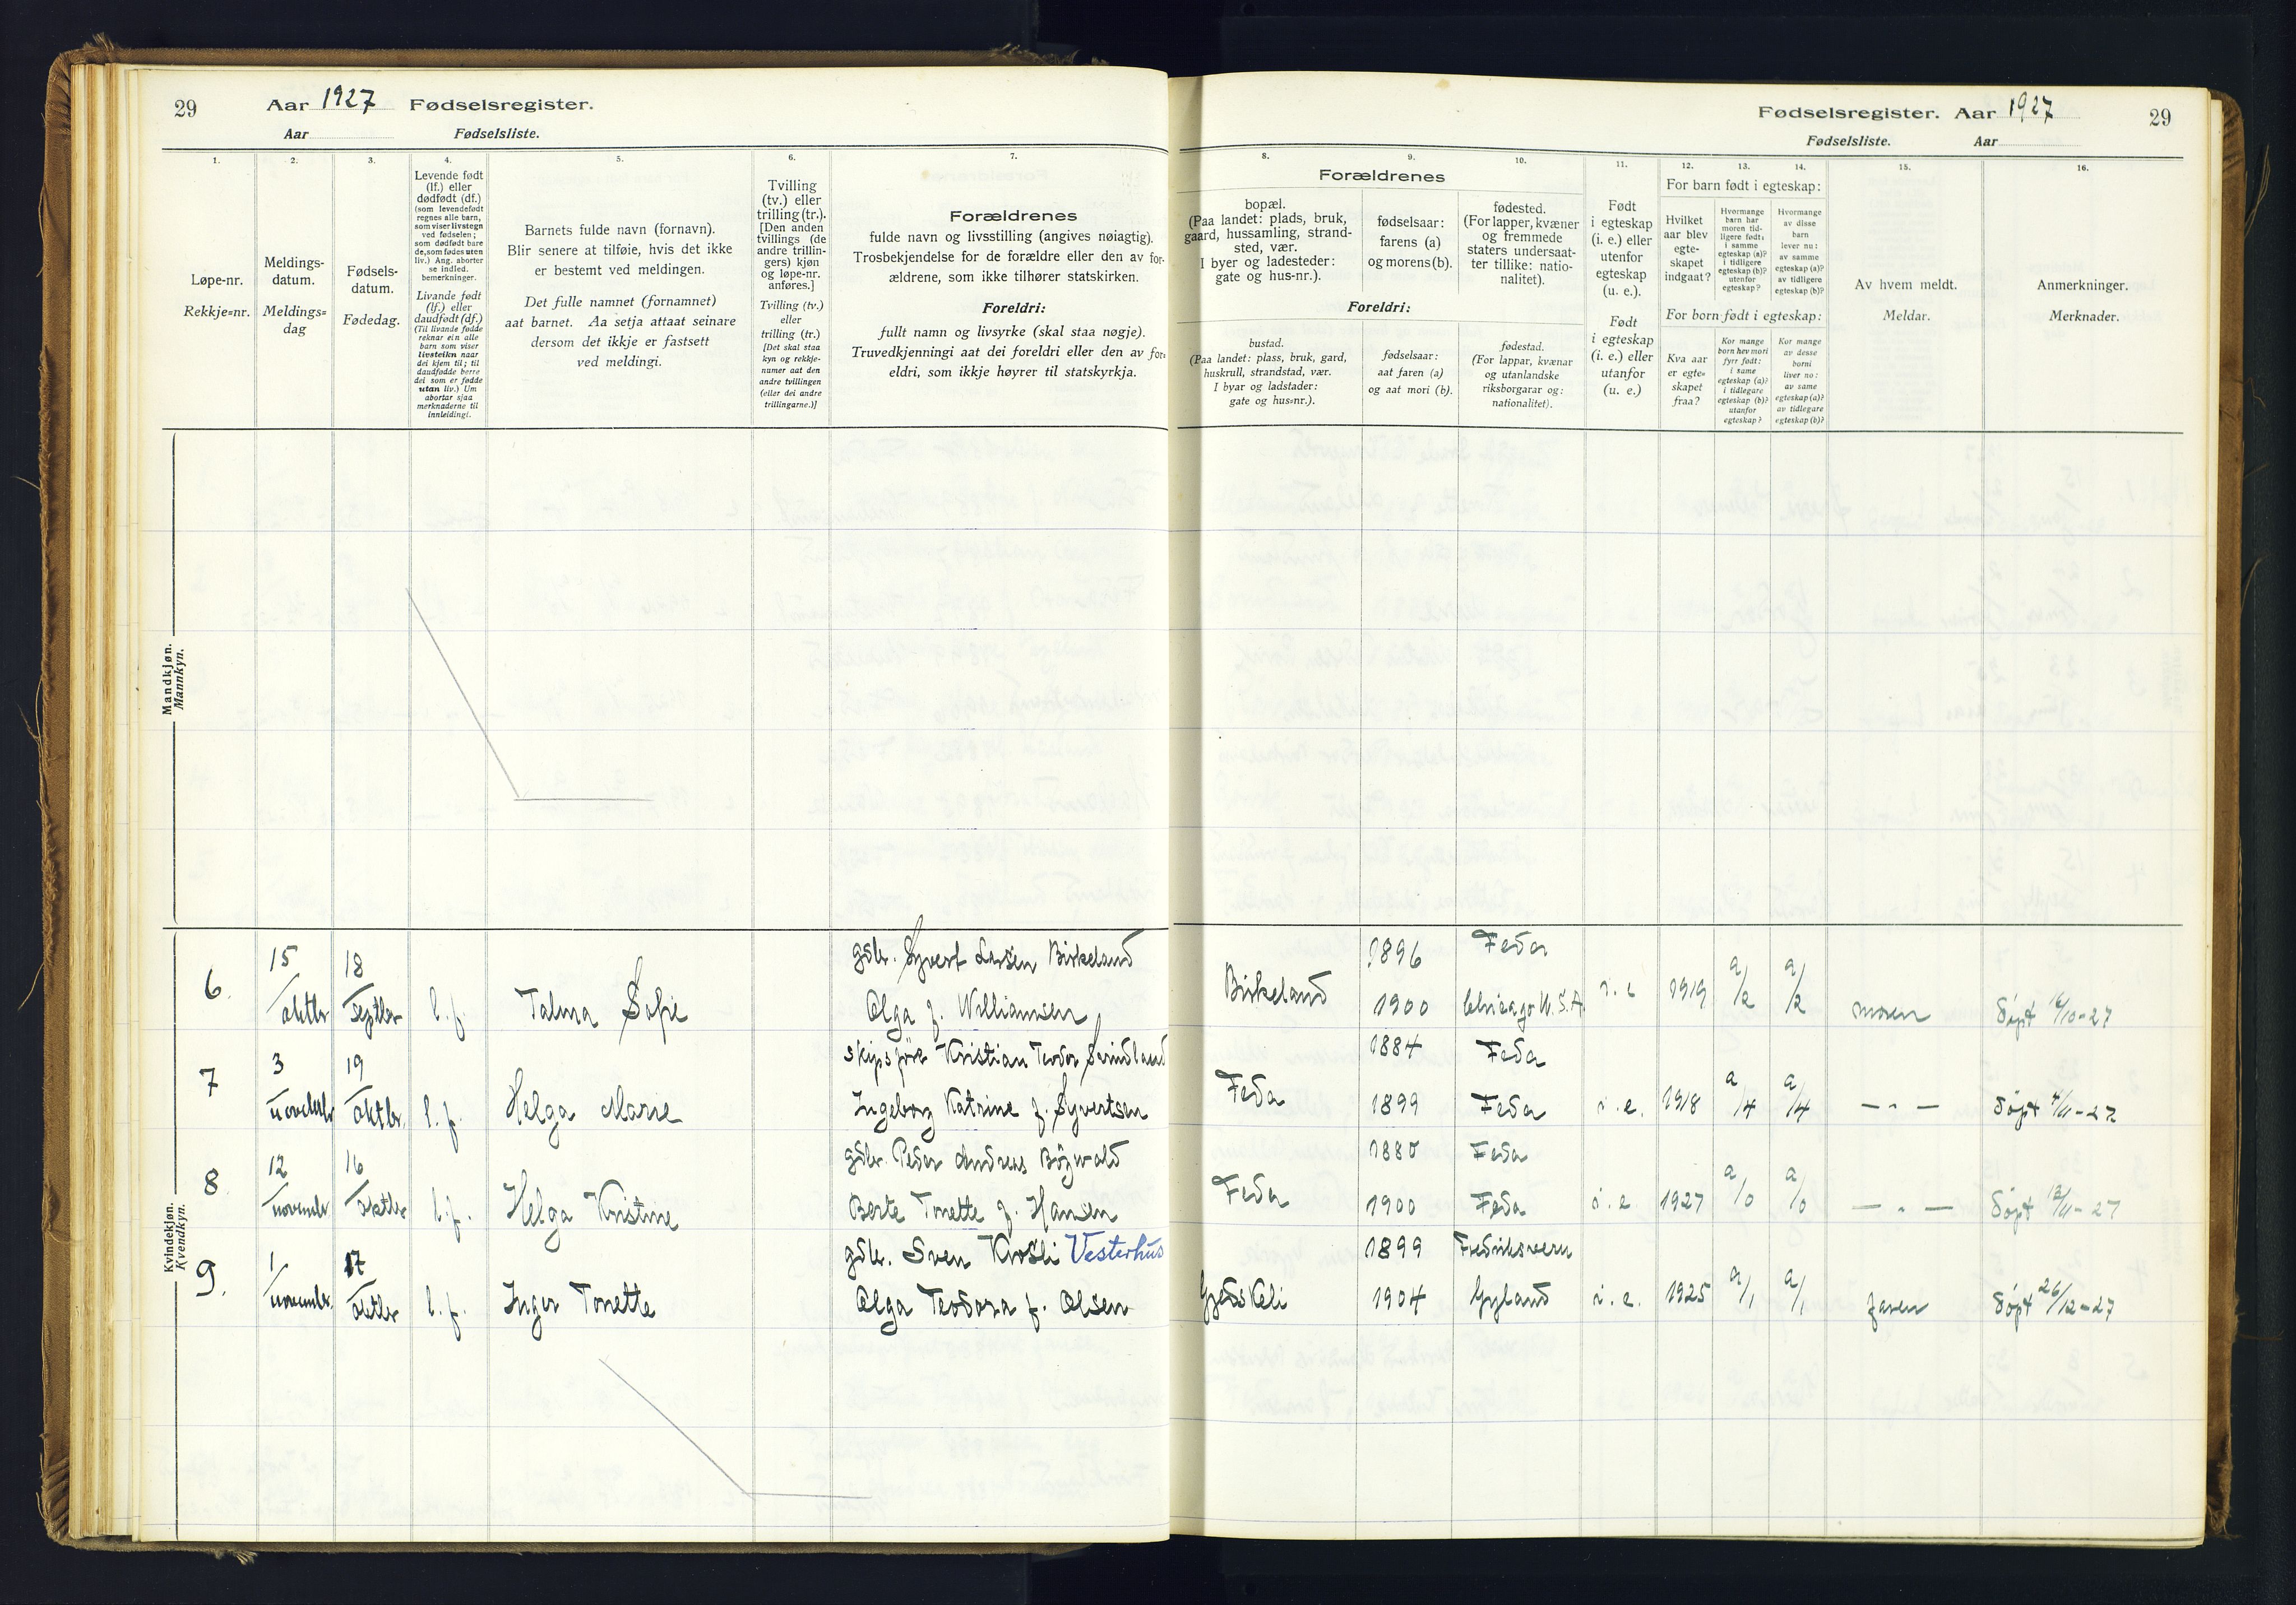 29
Aar 1927 Fødselsregister.
Aar Fødselsliste.
Fødselsregister. Aar 1927
29
Fødselsliste. Aar
1.
Løpe-nr.
Rekkje=nr.
2.
Meldings-
datum.
Meldings=
dag
3.
Fødsels-
datum.
Fødedag.
4.
Levende født
(lf.) eller
dødfødt (df.)
(som levendefødt
regnes alle barn,
som viser livstegn
ved fødselen;
som dødfødt bare
de, som fødes uten
liv.) Ang. aborter
se indled.
bemerkninger.
Livande født
(lf.) eller
daudfødt (df.)
(Til livande fødde
reknar ein alle
barn som viser
livsteikn naar
dei kjem til; til
daudfødde berre
dei som er fødde
utan liv.) Um
abortar sjaa
merknaderne til
innleidingi.
5.
Barnets fulde navn (fornavn).
Blir senere at tilføie, hvis det ikke
er bestemt ved meldingen.
Det fulle namnet (fornamnet)
aat barnet. Aa setja attaat seinare
dersom det ikkje er fastsett
ved meldingi.
6.
Tvilling
(tv.) eller
trilling (tr.).
[Den anden
tvillings (de
andre trillin-
gers) kjøn
og løpe-nr.
anføres.]
Tvilling (tv.)
eller
trilling (tr.)
[Det skal staa
kyn og rekkje-
numer aat den
andre tvillingen
(eller dei andre
trillingarne.)]
7.
Forældrenes
fulde navn og livsstilling (angives nøiagtig).
Trosbekjendelse for de forældre eller den av for-
ældrene, som ikke tilhører statskirken.
Foreldri:
fullt namn og livsyrke (skal staa nøgje).
Truvedkjenningi aat dei foreldri eller den av for-
eldri, som ikkje høyrer til statskyrkja.
Forældrenes
8.
bopæl.
(Paa landet: plads, bruk,
gaard, hussamling, strand-
sted, vær.
I byer og ladesteder:
gate og hus-nr.).
9.
fødselsaar:
farens (a)
og morens (b).
10.
fødested.
(For lapper, kvæner
og fremmede
staters undersaat-
ter tillike: natio-
nalitet).
Foreldri:
bustad.
(Paa landet: plass, bruk, gard,
huskrull, strandstad, vær.
I byar og ladstader:
gate og hus=nr.).
fødselsaar:
aat faren (a)
og aat mori (b).
fødestad.
(For lappar, kvænar
og utanlandske
riksborgarar og:
nationalitet).
11.
Født
i egteskap
(i. e.) eller
utenfor
egteskap
(u. e.).
Født
i egteskap
(i. e.) eller
utanfor
(u. e.)
12. 13. 14.
For barn født i egteskap:
Hvilket
aar blev
egte-
skapet
indgaat?
Hvormange
barn har
moren tid-
ligere født:
i samme
egteskap (a)?
i tidligere
egteskap (b)?
utenfor
egteskap?
Hvormange
av disse
barn
lever nu:
av samme
egteskap (a)?
av tidligere
egteskap (b)?
For born født i egteskap:
Kva aar
er egte=
skapet
fraa?
Kor mange
born hev mori
fyrr født:
i same
egteskap (a)?
i tidlegare
egteskap (b)?
utanfor
egteskap?
Kor mange
av desse
borni
liver no:
av same
egteskap (a)?
av tidlegare
egteskap (b)?
15.
Av hvem meldt.
Meldar.
16.
Anmerkninger.
Merknader.
Mandkjøn.
Mannkyn.
Kvindekjøn.
Kvendkyn.
gdbr. Syvert Larsen Birkeland 1896 Feda
6. 15/oktbr 18/septbr l.f. Talma Sofie Olga f. Williamsen Birkeland 1900 Chicago U.S.A. i.e 1919 a/2 a/2 moren døpt 16/10-27
skipsfører Kristian Teodor Svindland 1884 Feda
7 3/novembr 19/oktbr. l.f. Helga Marie Ingeborg Katrine f. Syvertsen Feda 1899 Feda i.e. 1918 a/4 a/4 — " — døpt 4/11-27
gdbr. Peder Andreas Bøgwald 1880 Feda
8 12/novembr 16/oktbr l.f. Helga Kristine Berte Tonette f. Hansen Feda 1900 Feda i.e. 1927 a/0 a/0 — " — døpt 12/11-27
gdbr. Sven Kvosli Vesterhus 1899 Fredriksvern
9. 1/novembr. 17/oktbr l.f. Inger Tonette Olga Teodora f. Olsen 1904 Gyland i.e. 1925 a/1 a/1 faren døpt 26/12-27